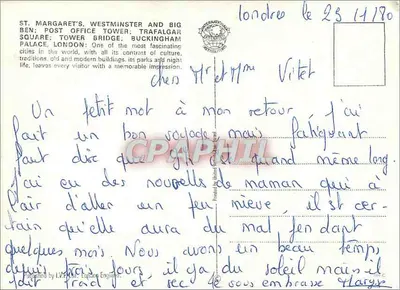 londres le 23/11/80
ST. MARGARET'S, WESTMINSTER AND BIG
BEN; POST OFFICE TOWER; TRAFALGAR
SQUARE; TOWER BRIDGE, BUCKINGHAM
PALACE, LONDON: One of the most fascinating
cities in the world, with all its contrasts of culture,
traditions, old and modern buildings, its parks and night
life, leaves every visitor with a memorable impression.
chers Mr et Mme Vitet
Un petit mot à mon retour, j'ai
fait un bon voyage mais fatiguant
faut dire que c'est quand même long.
J'ai eu des nouvelles de maman qui à
l'air d'aller un peu mieve, il est cer-
tain qu'elle aura du mal pendant
quelques mois. Nous avons un beau temps
depuis trois jours, il y a du soleil mais il
fait froid et sec je vous embrasse
CPARPHIL